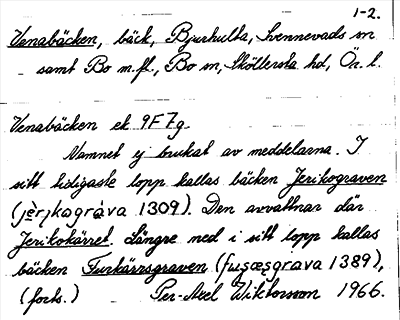 1-2.
Venabäcken, bäck, Bjurhulta, Svennevads sn
samt Bo m.fl., Bo sn, Sköllersta hd, Ör. l.
Venabäcken ek 9F7g
Namnet ej brukat av meddelarna. I
sitt tidigaste lopp kallas bäcken Jerikograven
(jèṛikográva 1309). Den avvattnar där
Jerikokärret. Längre ned i sitt lopp kallas
bäcken Furkärrsgraven (
1389),
(forts.) Per-Axel Wiktorsson 1966.